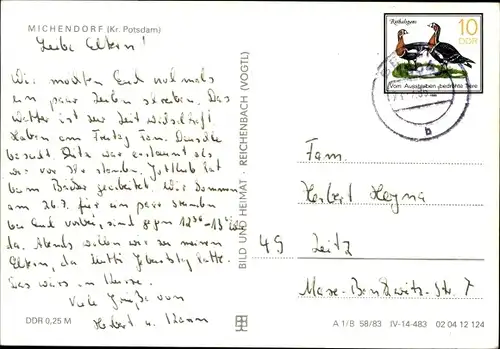 MICHENDORF (Kr. Potsdam)
Liebe Eltern!
Wir möchten Euch nochmals
ein paar Zeilen schreiben. Das
Wetter ist zur Zeit
haben am Freitag Fam.
besucht. war erstaunt als
wir vor Tür standen. Gotthold hat
beim Bäcker gearbeitet. Wir kommen
am 26.7. für ein paar Stunden
bei Euch vorbei, sind gegen 12³⁰-13
da. Abends wollen wir zu meinen
Eltern, da Mutti Geburtstag hatte.
Das wärs in Kürze.
Viele Grüße von
u.
DDR 0,25 M
BILD UND HEIMAT · REICHENBACH (VOGTL)
Rothalsgans 10
DDR
Vom Aussterben bedrohte Tiere
b
Fam.
Herbert Heyna
49 Zeitz
Str. 7
A 1/B 58/83 IV-14-483 02 04 12 124